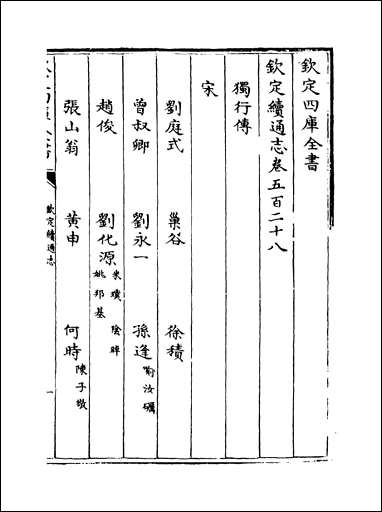 欽定四庫全書
欽定續通志卷五百二十八
獨行傳
宋
劉庭式 巢谷 徐積
曾叔卿 劉永一 孫逢 喻汝礪
趙俊 劉化源 米璞 姚邦基 陰晫
張山翁 黄申 何時 陳子敬
欽定續通志
一